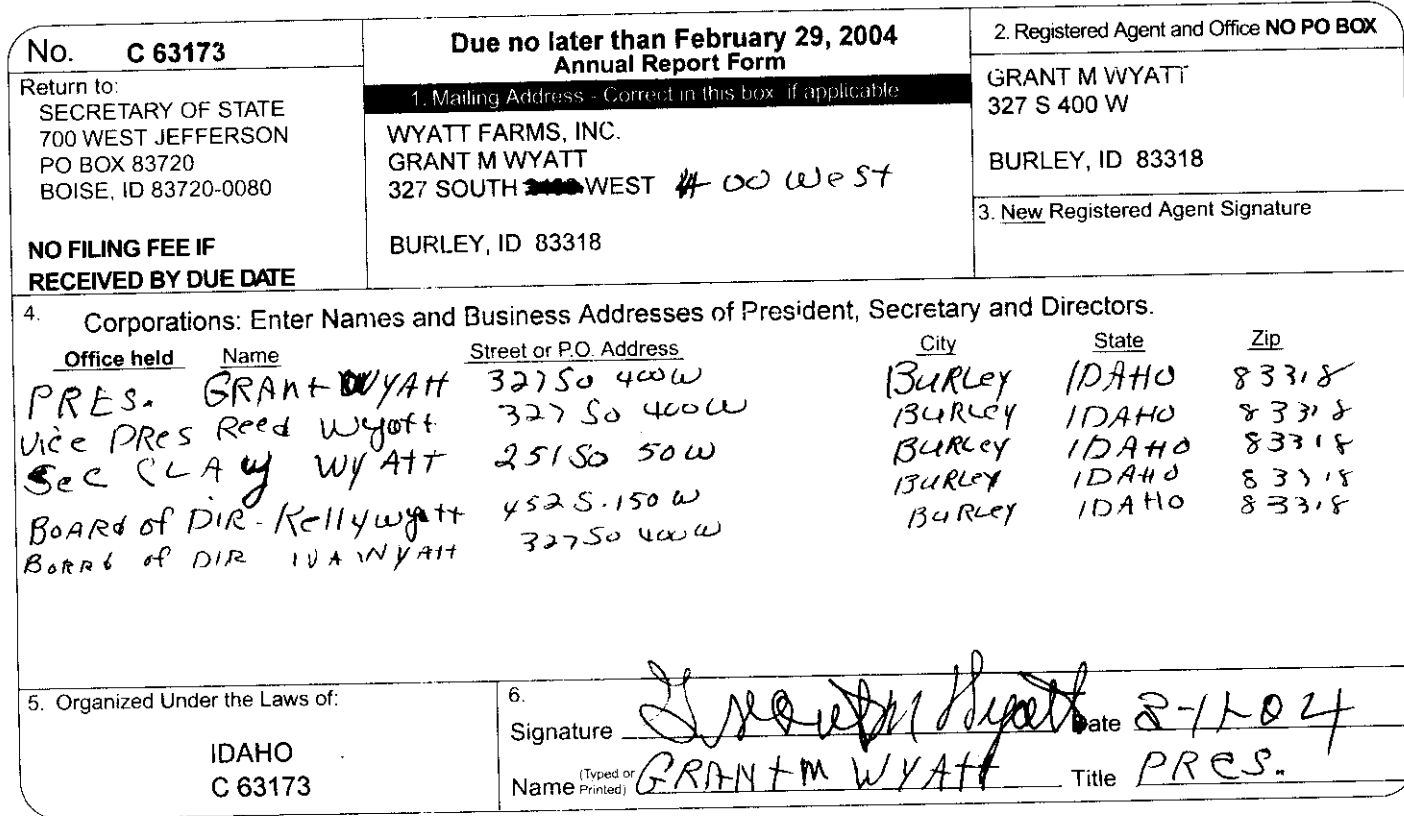 No. C 63173
Return to:
SECRETARY OF STATE
700 WEST JEFFERSON
PO BOX 83720
BOISE, ID 83720-0080
NO FILING FEE IF
RECEIVED BY DUE DATE
Due no later than February 29, 2004
Annual Report Form
1. Mailing Address - Correct in this box if applicable
WYATT FARMS, INC.
GRANT M WYATT
327 SOUTH WEST 400 West
BURLEY, ID 83318
2. Registered Agent and Office NO PO BOX
GRANT M WYATT
327 S 400 W
BURLEY, ID 83318
3. New Registered Agent Signature
4. Corporations: Enter Names and Business Addresses of President, Secretary and Directors.
Office held Name Street or P.O. Address City State Zip
PRES. GRANT WYATT 327 So 400 W BURLEY IDAHO 83318
Vice PRes Reed Wyatt 327 So 400 W BURLEY IDAHO 83318
Sec CLAy WYATT 251 So 50 W BURLEY IDAHO 83318
BOARd of DIR - Kelly wyatt 452 S. 150 W BURLEY IDAHO 83318
BoARd of DIR IVA WYATT 327 So 400 W BURLEY IDAHO 83318
5. Organized Under the Laws of:
IDAHO
C 63173
6.
Signature Grant M Wyatt Date 2-11-04
Name (Typed or Printed) GRANT M WYATT Title PRES.